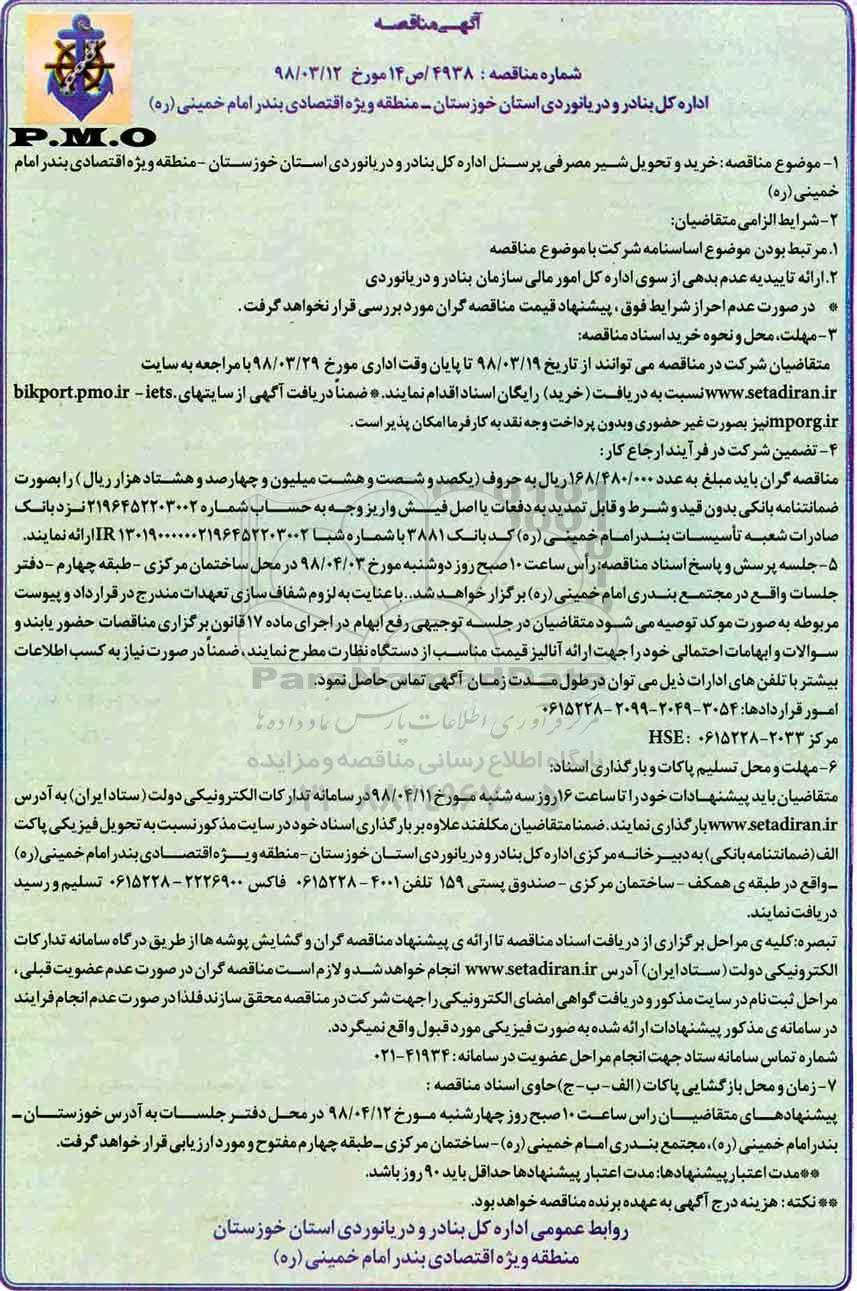 آگهی مناقصه
شماره مناقصه : ۴۹۳۸/ص۱۴ مورخ ۹۸/۰۳/۱۲
اداره کل بنادر و دریانوردی استان خوزستان ـ منطقه ویژه اقتصادی بندر امام خمینی (ره)
P.M.O
۱- موضوع مناقصه: خرید و تحویل شیر مصرفی پرسنل اداره کل بنادر و دریانوردی استان خوزستان -منطقه ویژه اقتصادی بندر امام
خمینی (ره)
۲-شرایط الزامی متقاضیان:
۱.مرتبط بودن موضوع اساسنامه شرکت با موضوع مناقصه
۲.ارائه تاییدیه عدم بدهی از سوی اداره کل امور مالی سازمان بنادر و دریانوردی
* در صورت عدم احراز شرایط فوق ، پیشنهاد قیمت مناقصه گران مورد بررسی قرار نخواهد گرفت .
۳-مهلت، محل و نحوه خرید اسناد مناقصه:
متقاضیان شرکت در مناقصه می توانند از تاریخ ۹۸/۰۳/۱۹ تا پایان وقت اداری مورخ ۹۸/۰۳/۲۹ با مراجعه به سایت
www.setadiran.ir نسبت به دریافت (خرید) رایگان اسناد اقدام نمایند.* ضمناً دریافت آگهی از سایتهای bikport.pmo.ir - iets.
mporg.ir نیز بصورت غیر حضوری وبدون پرداخت وجه نقد به کارفرما امکان پذیر است .
۴- تضمین شرکت در فرآیند ارجاع کار :
مناقصه گران باید مبلغ به عدد ۱۶۸/۴۸۰/۰۰۰ ریال به حروف (یکصد و شصت و هشت میلیون و چهارصد و هشتاد هزار ریال ) را بصورت
ضمانتنامه بانکی بدون قید و شرط و قابل تمدید به دفعات یا اصل فیش واریز وجه به حساب شماره ۲۱۹۶۴۵۲۲۰۳۰۰۲ نزد بانک
صادرات شعبه تأسیسات بندر امام خمینی (ره) کد بانک ۳۸۸۱ با شماره شبا IR ۱۳۰۱۹۰۰۰۰۰۰۰۲۱۹۶۴۵۲۲۰۳۰۰۲ ارائه نمایند.
۵-جلسه پرسش و پاسخ اسناد مناقصه: رأس ساعت ۱۰ صبح روز دوشنبه مورخ ۹۸/۰۴/۰۳ در محل ساختمان مرکزی -طبقه چهارم -دفتر
جلسات واقع در مجتمع بندری امام خمینی (ره) برگزار خواهد شد..با عنایت به لزوم شفاف سازی تعهدات مندرج در قرارداد و پیوست
مربوطه به صورت موکد توصیه می شود متقاضیان در جلسه توجیهی رفع ابهام در اجرای ماده ۱۷ قانون برگزاری مناقصات حضور یابند و
سوالات و ابهامات احتمالی خود را جهت ارائه آنالیز قیمت مناسب از دستگاه نظارت مطرح نمایند ، ضمناً در صورت نیاز به کسب اطلاعات
بیشتر با تلفن های ادارات ذیل می توان در طول مدت زمان آگهی تماس حاصل نمود.
امور قراردادها: ۳۰۵۴-۲۰۴۹-۲۰۹۹ -۰۶۱۵۲۲۸
مرکز HSE : ۰۶۱۵۲۲۸-۲۰۳۳
۶-مهلت و محل تسلیم پاکات و بارگذاری اسناد:
متقاضیان باید پیشنهادات خود را تا ساعت ۱۶ روز سه شنبه مورخ ۹۸/۰۴/۱۱ در سامانه تدارکات الکترونیکی دولت (ستاد ایران) به آدرس
www.setadiran.ir بارگذاری نمایند . ضمنا متقاضیان مکلفند علاوه بر بارگذاری اسناد خود در سایت مذکور نسبت به تحویل فیزیکی پاکت
الف (ضمانتنامه بانکی) به دبیرخانه مرکزی اداره کل بنادر و دریانوردی استان خوزستان -منطقه ویژه اقتصادی بندر امام خمینی (ره)
ـواقع در طبقه ی همکف - ساختمان مرکزی - صندوق پستی ۱۵۹ تلفن ۴۰۰۱ - ۰۶۱۵۲۲۸ فاکس ۲۲۲۶۹۰۰ - ۰۶۱۵۲۲۸ تسلیم و رسید
دریافت نمایند.
تبصره:کلیه ی مراحل برگزاری از دریافت اسناد مناقصه تا ارائه ی پیشنهاد مناقصه گران و گشایش پوشه ها از طریق درگاه سامانه تدارکات
الکترونیکی دولت (ستاد ایران) آدرس www.setadiran.ir انجام خواهد شد و لازم است مناقصه گران در صورت عدم عضویت قبلی ،
مراحل ثبت نام در سایت مذکور و دریافت گواهی امضای الکترونیکی را جهت شرکت در مناقصه محقق سازند فلذا در صورت عدم انجام فرایند
در سامانه ی مذکور پیشنهادات ارائه شده به صورت فیزیکی مورد قبول واقع نمیگردد.
شماره تماس سامانه ستاد جهت انجام مراحل عضویت در سامانه : ۴۱۹۳۴-۰۲۱
۷- زمان و محل بازگشایی پاکات (الف-ب-ج)حاوی اسناد مناقصه :
پیشنهادهای متقاضیان راس ساعت ۱۰ صبح روز چهارشنبه مورخ ۹۸/۰۴/۱۲ در محل دفتر جلسات به آدرس خوزستان ـ
بندر امام خمینی (ره)، مجتمع بندری امام خمینی (ره) -ساختمان مرکزی ـ طبقه چهارم مفتوح و مورد ارزیابی قرار خواهد گرفت.
**مدت اعتبار پیشنهادها: مدت اعتبار پیشنهادها حداقل باید ۹۰ روز باشد.
** نکته : هزینه درج آگهی به عهده برنده مناقصه خواهد بود.
روابط عمومی اداره کل بنادر و دریانوردی استان خوزستان
منطقه ویژه اقتصادی بندر امام خمینی (ره)